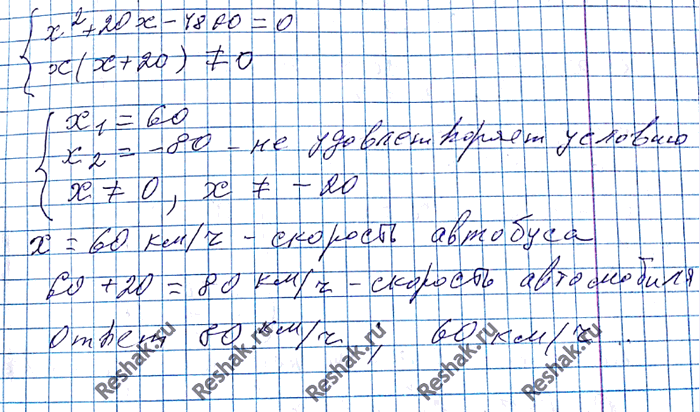 x² + 20x - 4800 = 0
x(x+20) ≠ 0
x₁ = 60
x₂ = -80 - не удовлетворяет условию
x ≠ 0, x ≠ -20
x = 60 км/ч - скорость автобуса
60 + 20 = 80 км/ч - скорость автомобиля
Ответ 80 км/ч ; 60 км/ч .
Reshak.ru Reshak.ru Reshak.ru Reshak.ru Reshak.ru